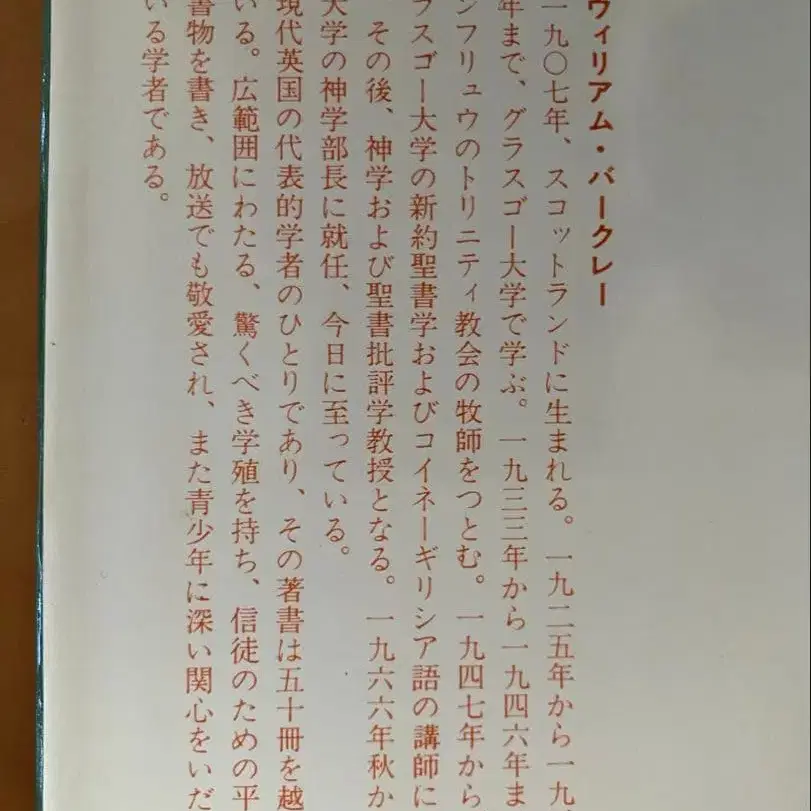 ウィリアム・バークレー
一九〇七年、スコットランドに生まれる。一九二五年から一九
年まで、グラスゴー大学で学ぶ。一九三三年から一九四六年ま
ンフリュウのトリニティ教会の牧師をつとむ。一九四七年から
ラスゴー大学の新約聖書学およびコイネーギリシア語の講師に
その後、神学および聖書批評学教授となる。一九六六年秋か
大学の神学部長に就任、今日に至っている。
現代英国の代表的学者のひとりであり、その著書は五十冊を越
いる。広範囲にわたる、驚くべき学殖を持ち、信徒のための平
書物を書き、放送でも敬愛され、また青少年に深い関心をいだ
いる学者である。